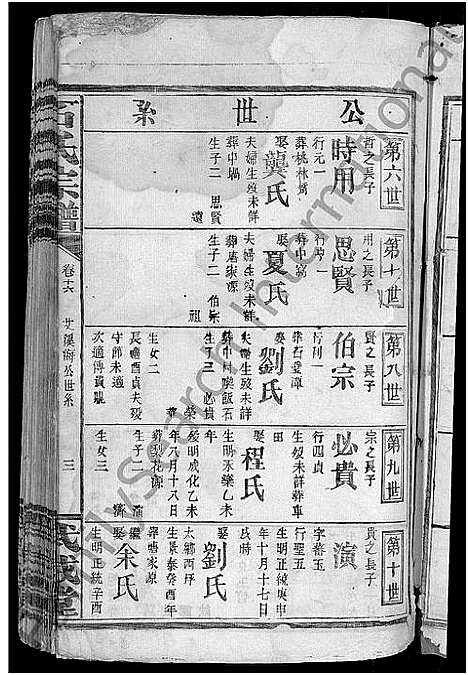 公世系
第六世
哲之長子
時用
行元一
葬桃林窩
娶
龔氏
夫婦生歿未詳
葬中堝
生子二 思賢
遠
第七世
用之長子
思賢
葬中窩
娶
夏氏
夫婦生歿未詳
葬唐家源
生子二 伯宗
祖
第八世
賢之長子
伯宗
行利一
娶
劉氏
夫婦生歿未詳
生子三 必貴
榮
華
生女二
長適酉貞夫歿
守節未適
次適傅貴驥
第九世
宗之長子
必貴
行四貞
生歿未詳葬車
田
娶
程氏
生明永樂乙未
年
歿明成化乙未
年八月十八日
葬梨花源
生子二 演
濟
生女三
第十世
貴之長子
演
字普玉
行聖五
生明正統庚申
年十月十七日
戌時
娶
劉氏
生景泰癸酉年
太鄉西坪
葬曹家源
繼娶
余氏
生明正統辛酉
石氏宗譜
卷十六
艾溪海公世系
三
武威堂
My Search International